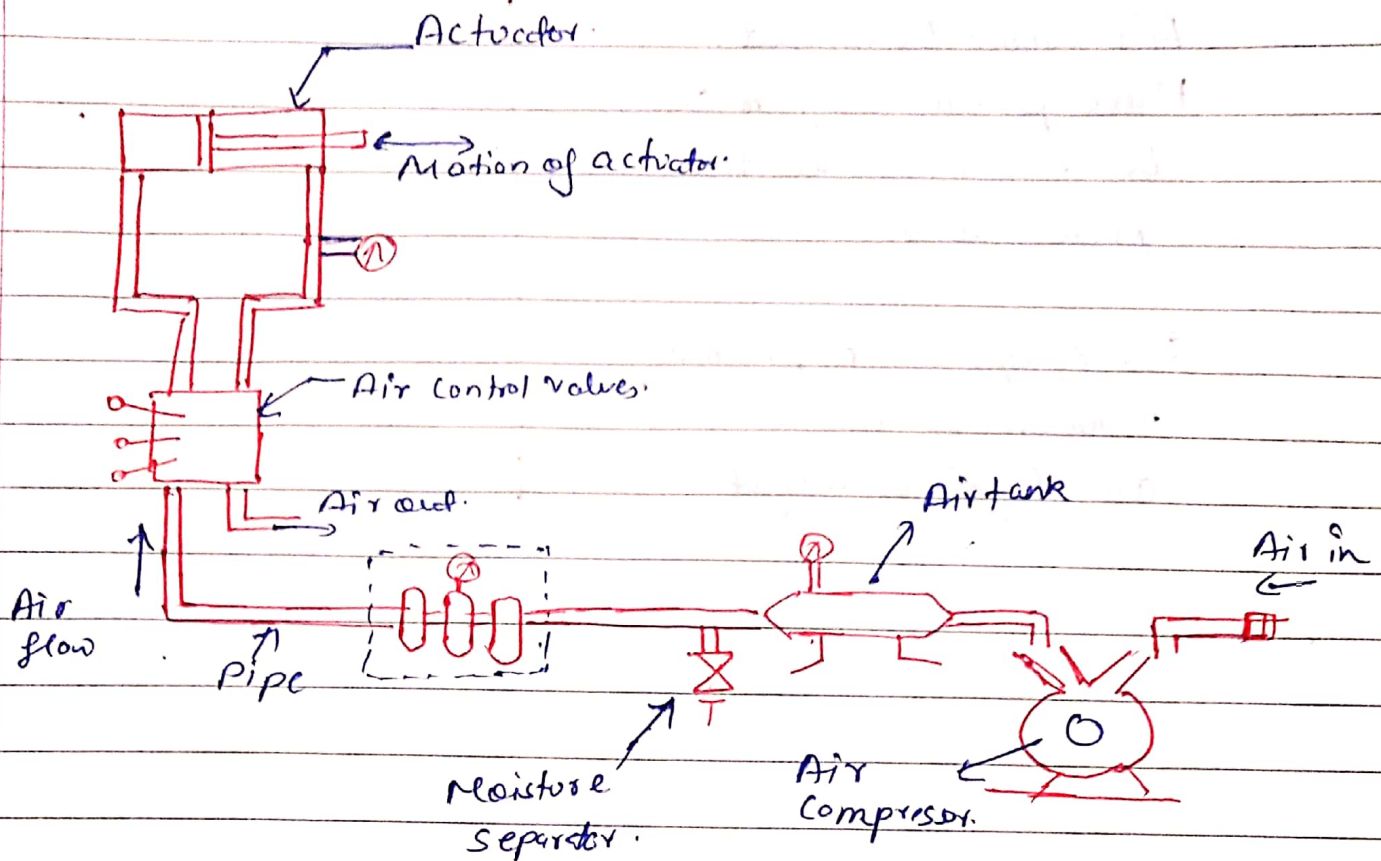 Actuator.
Motion of actuator.
Air control valves.
Air out.
Air tank
Air in
Air
flow
Pipe
Moisture
separator.
Air
Compresor.